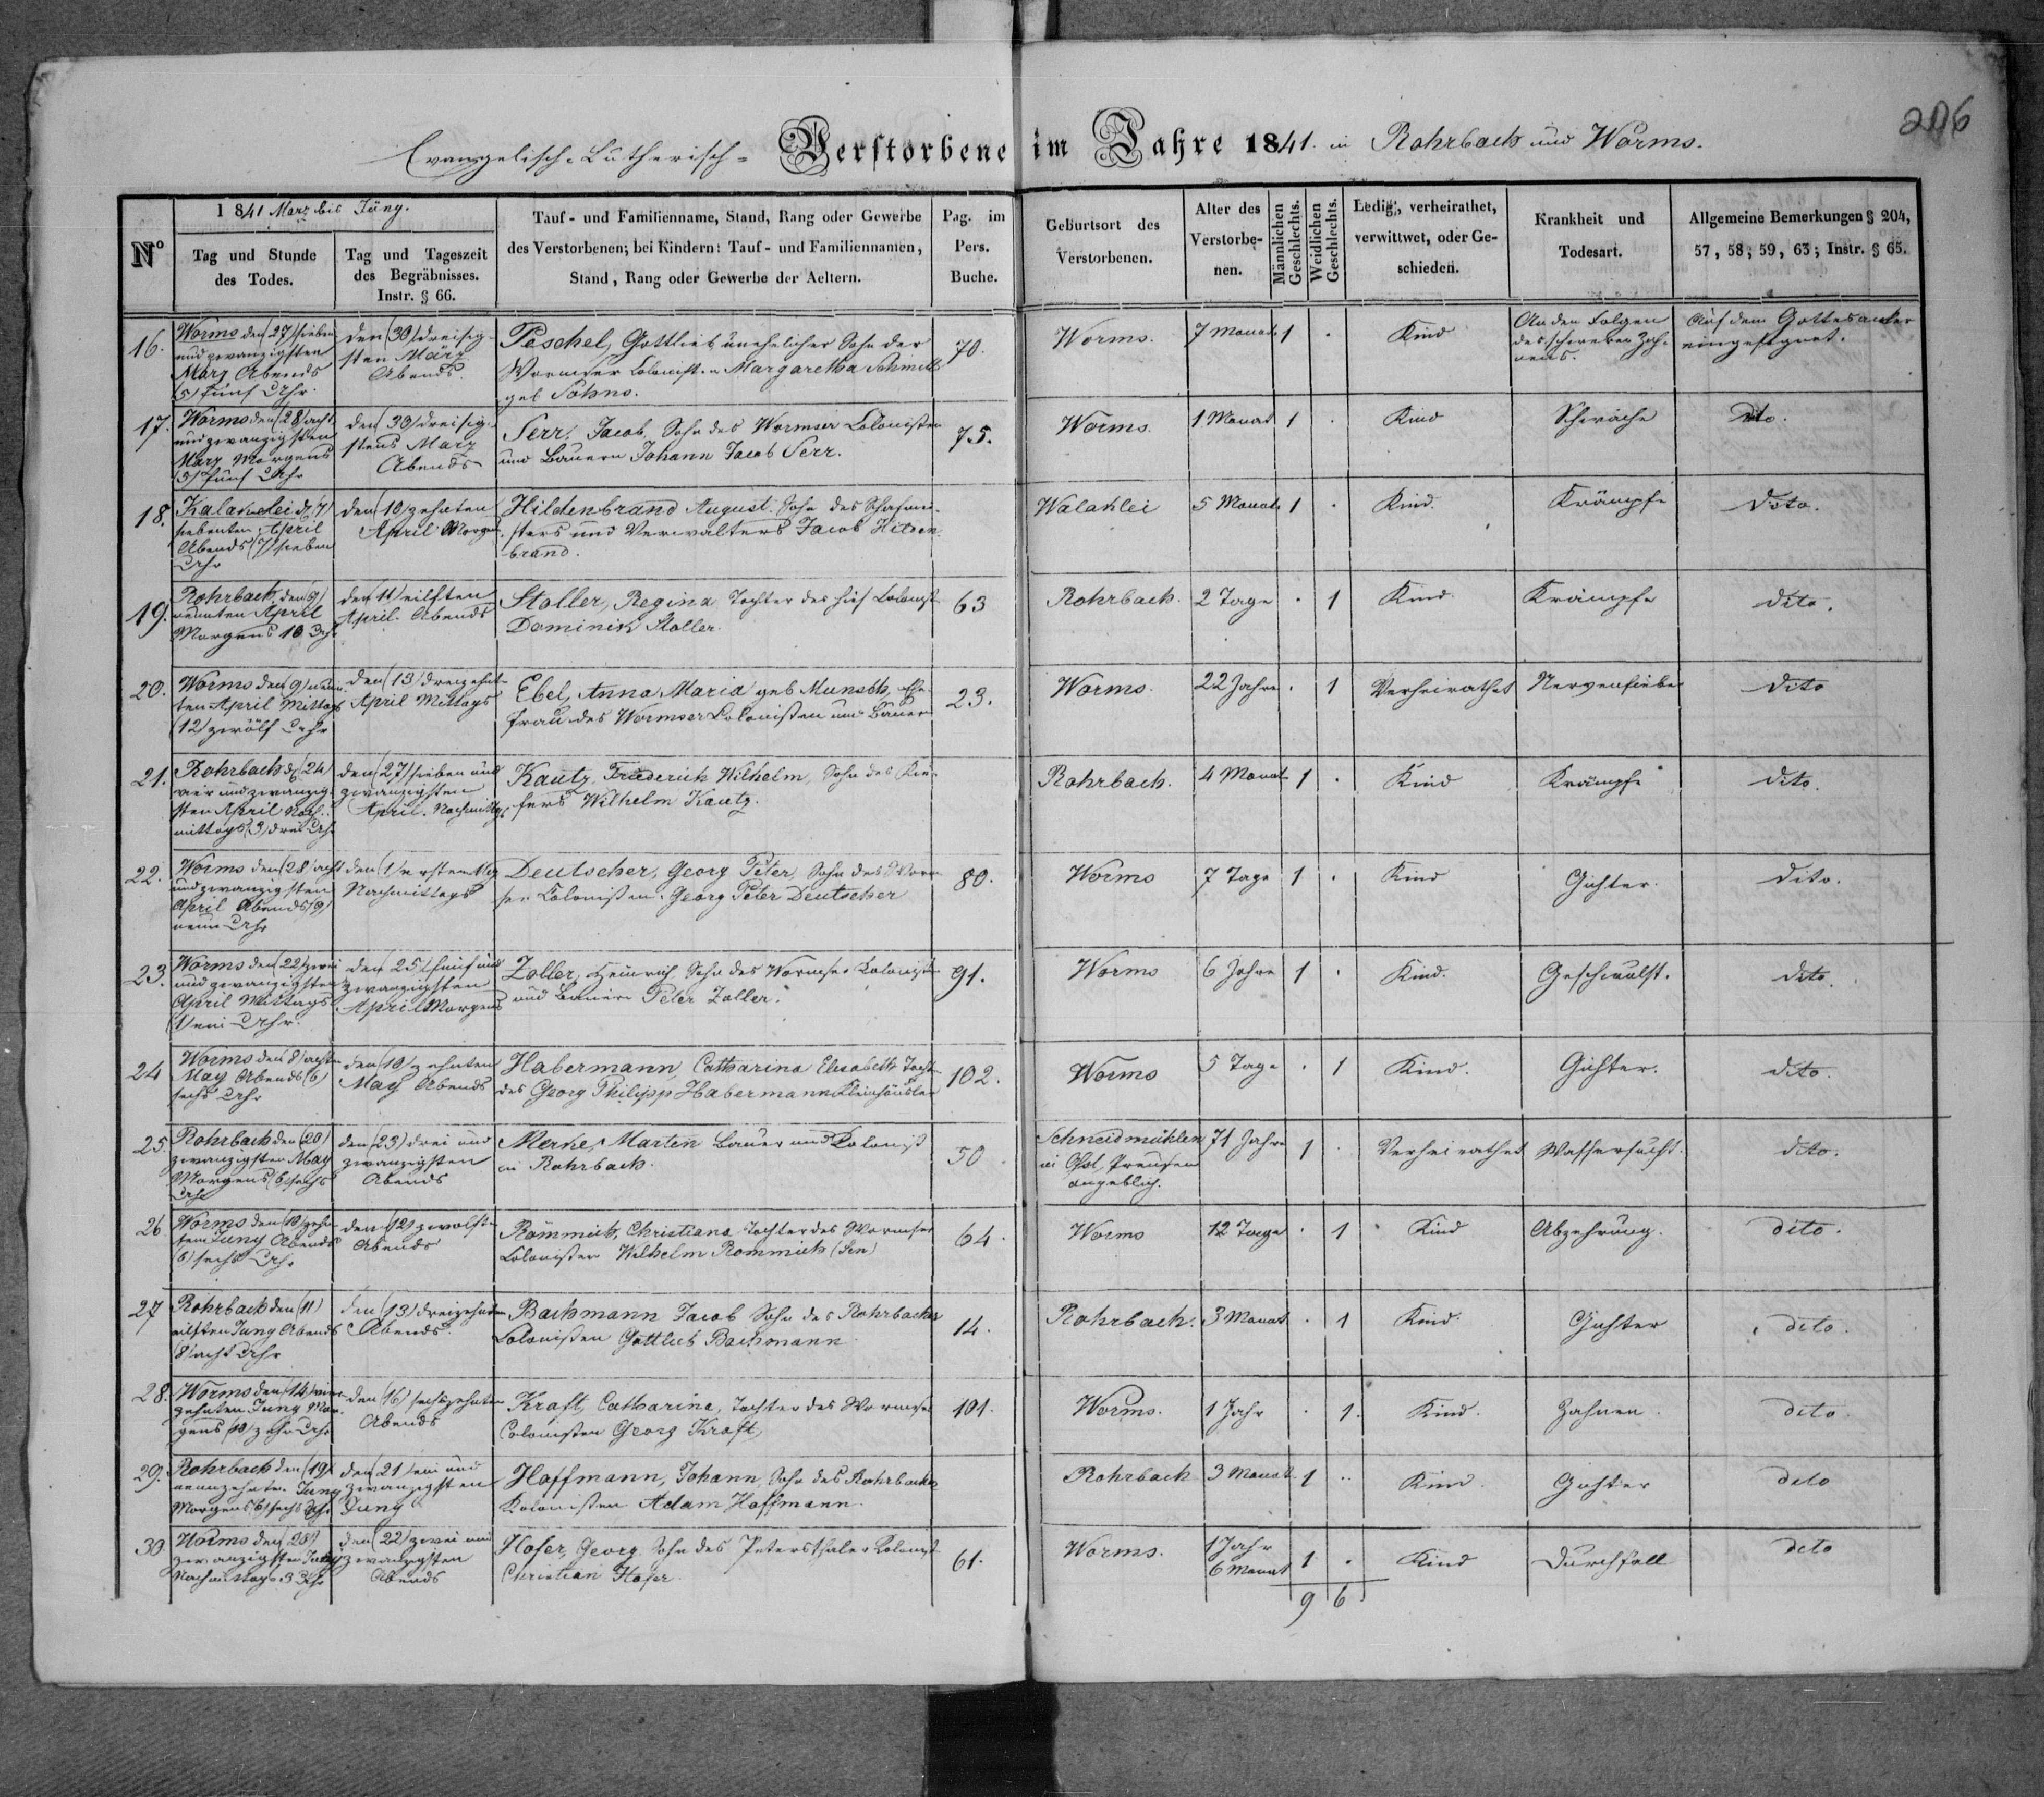 206
Evangelisch-Lutherisch- Verstorbene im Jahre 1841. in Rohrbach und Worms.
N°
1841 März bis Juny.
Tag und Stunde
des Todes.
Tag und Tageszeit
des Begräbnisses.
Instr. § 66.
Tauf- und Familienname, Stand, Rang oder Gewerbe
des Verstorbenen; bei Kindern: Tauf- und Familiennamen,
Stand, Rang oder Gewerbe der Aeltern.
Pag. im
Pers.
Buche.
Geburtsort des
Verstorbenen.
Alter des
Verstorbe-
nen.
Männlichen
Geschlechts.
Weiblichen
Geschlechts.
Ledig, verheirathet,
verwittwet, oder Ge-
schieden.
Krankheit und
Todesart.
Allgemeine Bemerkungen § 204,
57, 58, 59, 63; Instr. § 65.
16.
Worms den (27) sieben
und zwanzigsten
März Abends
(5) fünf Uhr.
den (30) dreisig-
sten März
Abends.
Peschel, Gottlieb unehelicher Sohn der
Wormser Colonist. Margaretha Schmidt
geb Sohns.
70.
Worms.
7 Monat
1
.
Kind
An den Folgen
des schweren Zah-
nens.
Auf dem Gottesacker
eingesegnet.
17.
Worms den (28) acht
und zwanzigsten
März Morgens
(5) fünf Uhr
den (30) dreisig-
stens März
Abends
Serr, Jacob, Sohn des Wormser Colonisten
und Bauern Johann Jacob Serr.
75.
Worms.
1 Monat
1
.
Kind
Schwäche
dto.
18.
Kalaklei d. (7)
siebenten April
Abends (7) sieben
Uhr
den (10) zehnten
April Morgen.
Hildenbrand August. Sohn des Schafmei-
sters und Verwalters Jacob Hilden-
brand.
Walaklei
5 Monat
1
.
Kind.
Krämpfe
Dito.
19.
Rohrbach, den (9)
neunten April
Morgens 10 Uhr
den (11) eilften
April. Abends
Stoller, Regina, Tochter des hies Colonist
Dominik Stoller.
63
Rohrbach.
2 Tage
.
1
Kind.
Krämpfe
dito.
20.
Worms den (9) neun-
ten April Mittags
(12) zwölf Uhr
den (13) dreizehnt-
April Mittags
Ebel, Anna Maria geb Munsch, Ehe-
frau des Wormser Colonisten und Bauer
23.
Worms.
22 Jahre
.
1
Verheirathet
Nervenfieber
dito
21.
Rohrbach d. (24)
vier und zwanzig-
sten April Nach-
mittags (3) drei Uhr
den (27) sieben und
zwanzigsten
April. Nachmittag
Kautz, Friederich Wilhelm, Sohn des Kü-
fers Wilhelm Kautz.
Rohrbach.
4 Monat
1
.
Kind
Krämpfe
dito.
22.
Worms den (28) acht
und zwanzigsten
April Abends (9)
neun Uhr
den (1) ersten May
Nachmittags
Deutscher, Georg Peter, Sohn des Worm-
ser Colonisten. Georg Peter Deutscher
80.
Worms
7 Tage
1
.
Kind
Gichter.
dito.
23.
Worms den (22) zwei
und zwanzigsten
April Mittags
(1) ein Uhr.
den 25) fünf und
zwanzigsten
April Morgens
Zoller, Heinrich, Sohn des Wormser Kolonisten
und Bauern Peter Zoller.
91.
Worms
6 Jahre
1
.
Kind.
Geschwulst.
dito.
24
Worms den (8) achten
May Abends (6)
sechs Uhr
den (10) zehnten
May Abends
Habermann, Catharina Elisabeth Tocht-
des Georg Philipp Habermann Kleinhäusler
102.
Worms
5 Tage
.
1
Kind.
Gichter.
dito.
25.
Rohrbach den (20)
zwanzigsten May
Morgens (6) sechs
Uhr
den (23) drei und
zwanzigsten
Abends
Merke, Martin Bauer und Kolonist
in Rohrbach.
50
Schneidmühlen
in Ost, Preusen
angeblich.
71 Jahre
1
.
Verheirathet
Wassersucht.
dito.
26
Worms den (10) zehn-
ten Juny Abends
(6) sechs Uhr
den (12) zwölft-
Abends
Römmich, Christiana Tochter des Wormser
Colonisten Wilhelm Rommich
64.
Worms
12 Tage
.
1
Kind
Abzehrung.
dito.
27
Rohrbach den (11)
eilften Juny Abends
(8) acht Uhr
den (13) dreizehnten
Abends.
Bachmann Jacob Sohn des Rohrbacher
Colonisten Gottlieb Bachmann
14.
Rohrbach.
3 Monat
.
1
Kind.
Gichter
dito.
28.
Worms den (14) vier-
zehnten Juny Mor-
gens (10) zehn Uhr
den (16) sechszehnten
Abends
Kraft, Catharina, Tochter des Wormser
Colonisten Georg Kraft,
101.
Worms.
1 Jahr
.
1.
Kind.
Zahnen.
dito.
29.
Rohrbach den (19)
neunzehnten Juny
Morgens (6) sechs Uhr
den (21) ein und
zwanzigsten
Juny
Hoffmann, Johann, Sohn des Rohrbacher
Kolonisten Adam Hoffmann.
Rohrbach
3 Monat
1
..
Kind.
Gichter
dito
30
Worms den (20)
zwanzigsten Juny
Nachmittags 3 Uhr
den (22) zwei und
zwanzigsten
Abends
Hofer, Georg Sohn des Petersthaler Kolonist
Christian Hofer.
61.
Worms.
1 Jahr
6 Monat
1
.
Kind
Durchfall
dito
9 6